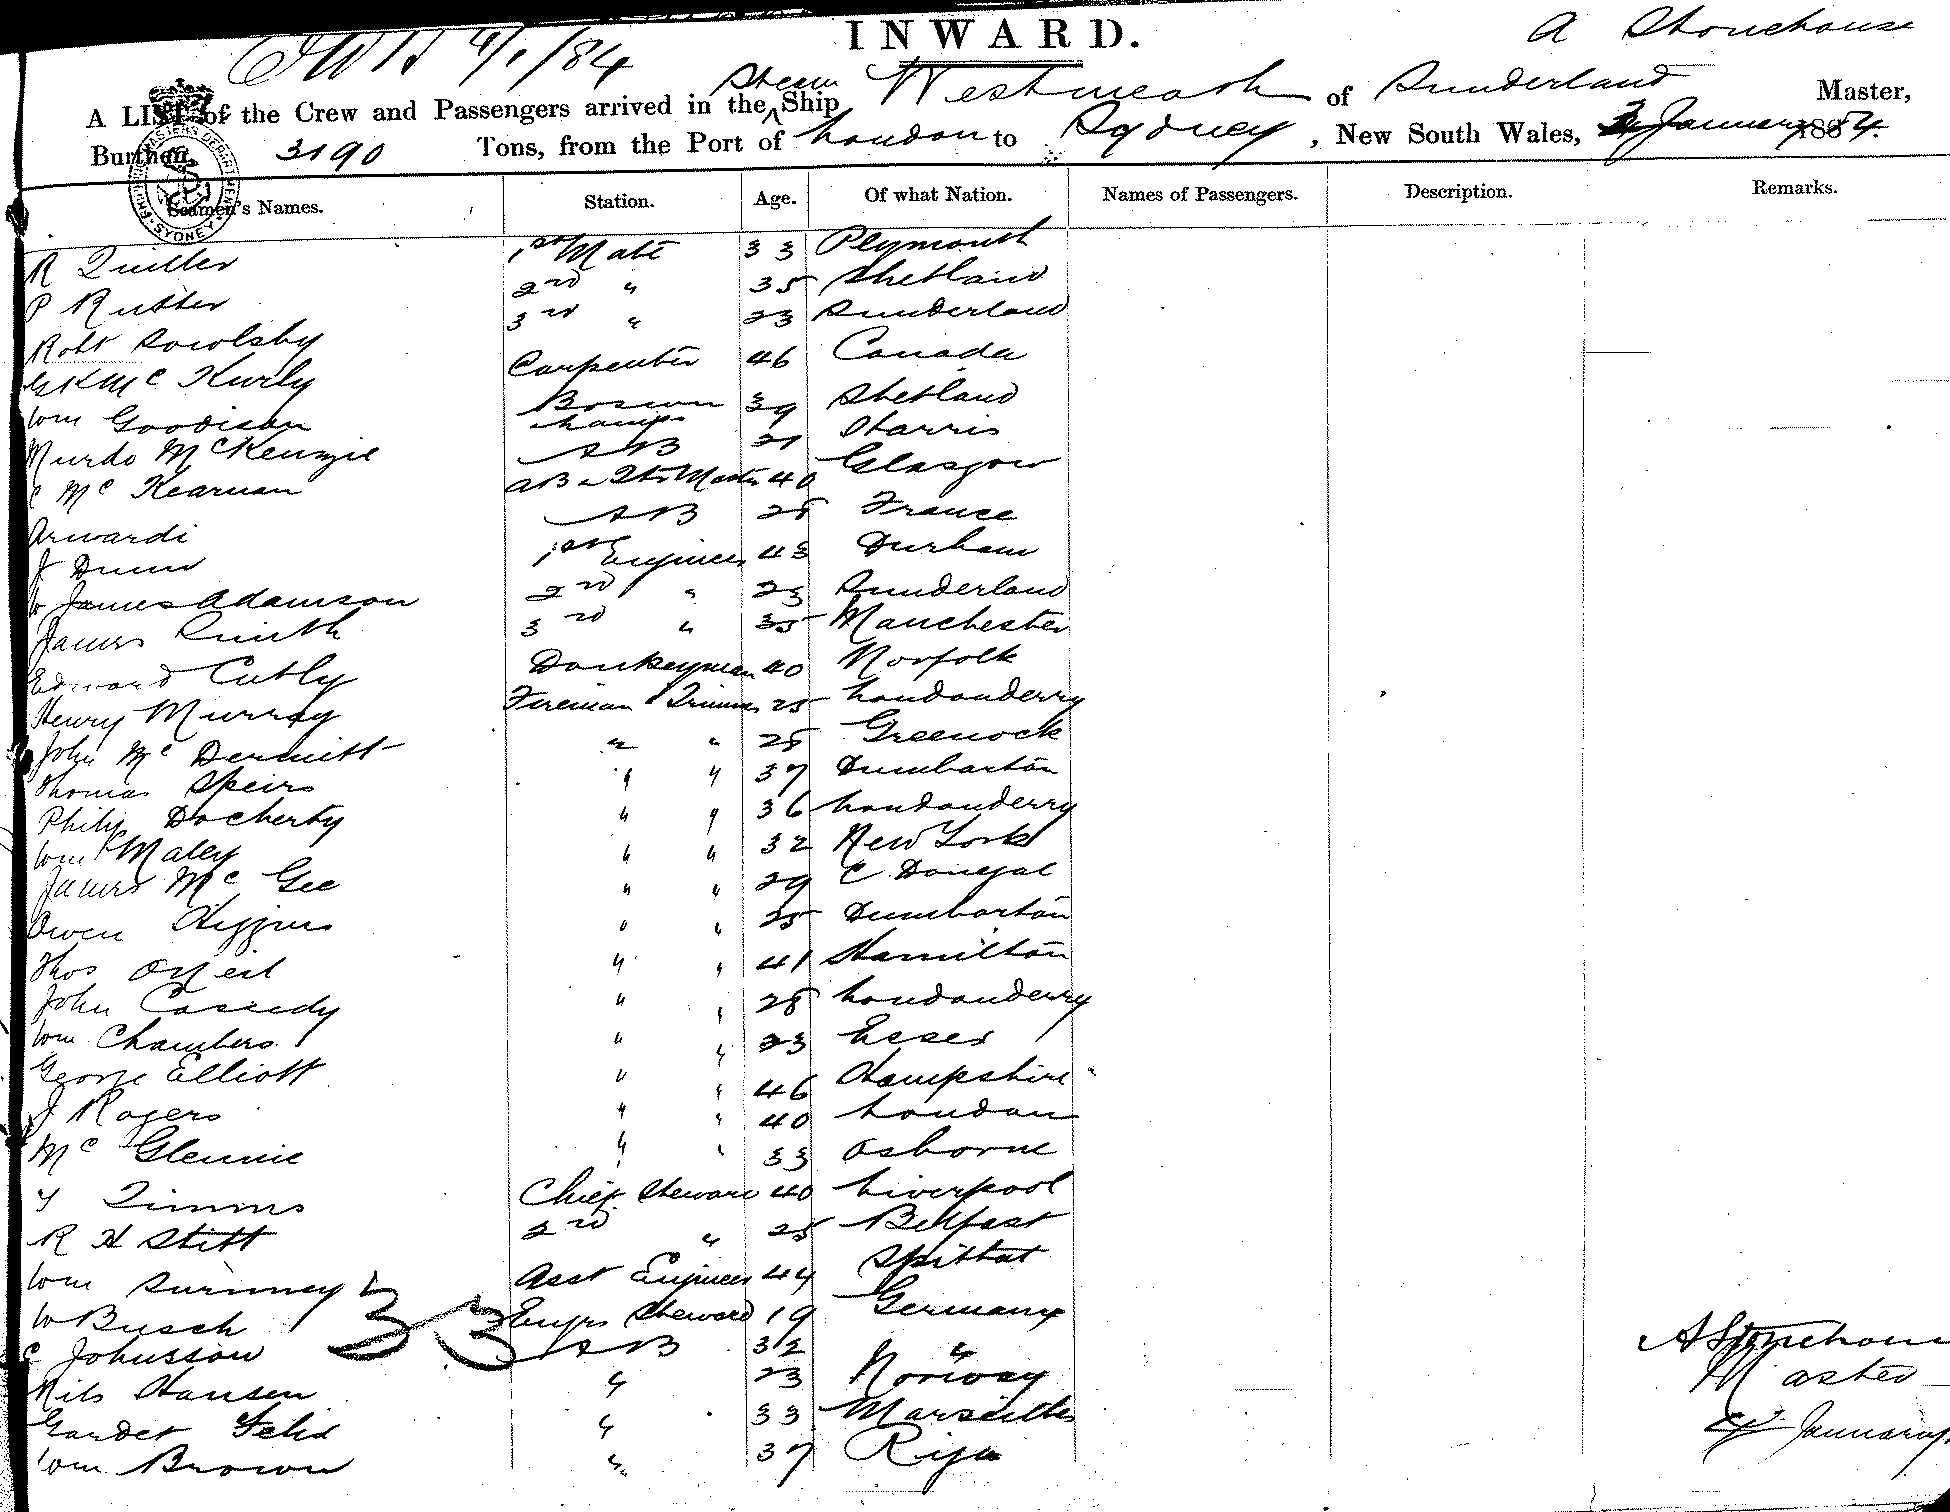 INWARD.
A Stonehouse
A LIST of the Crew and Passengers arrived in the Steam Ship Westmeath of Sunderland Master,
Burthen, 3190 Tons, from the Port of London to Sydney, New South Wales, January 1884.
Seamen's Names. Station. Age. Of what Nation. Names of Passengers. Description. Remarks.
R Quiller 1st Mate 33 Plymouth
P Rutter 2nd " 35 Shetland
Robt Sowlsby 3rd " 23 Sunderland
Mc Kurly Carpenter 46 Canada
Wm Goodison Boswn 39 Shetland
Murdo McKenzie Lamps AB 21 Harris
C Mc Kearnan AB & Qtr Master 40 Glasgow
Arwardi AB 28 France
J Dunn 1st Engineer 43 Durham
W James Adamson 2nd " 23 Sunderland
James Smith 3rd " 35 Manchester
Edward Cubly Donkeyman 40 Norfolk
Henry Murray Fireman & Trimmer 25 Londonderry
John Mc Dermitt " " 28 Greenock
Thomas Speirs " " 37 Dumbarton
Philip Docherty " " 36 Londonderry
Wm Maley " " 32 New York
James Mc Gee " " 29 C. Donegal
Owen Higgins " " 25 Dumbarton
Thos O'Neil " " 41 Hamilton
John Cassidy " " 28 Londonderry
Wm Chambers " " 23 Essex
George Elliott " " 46 Hampshire
J Rogers " " 40 London
Mc Glennie " " 33 Osborne
Y Timms Chief Steward 40 Liverpool
R H Stitt 2nd " 25 Belfast
Wm Surmney Asst Engineer 44 Spittal
W Busch Engrs Steward 19 Germany
C Johnsson AB 32 "
Nils Hansen " 23 Norway
Gardet Felix " 33 Marseilles
Wm Brown " 37 Riga
33
A Stonehouse
Master
January